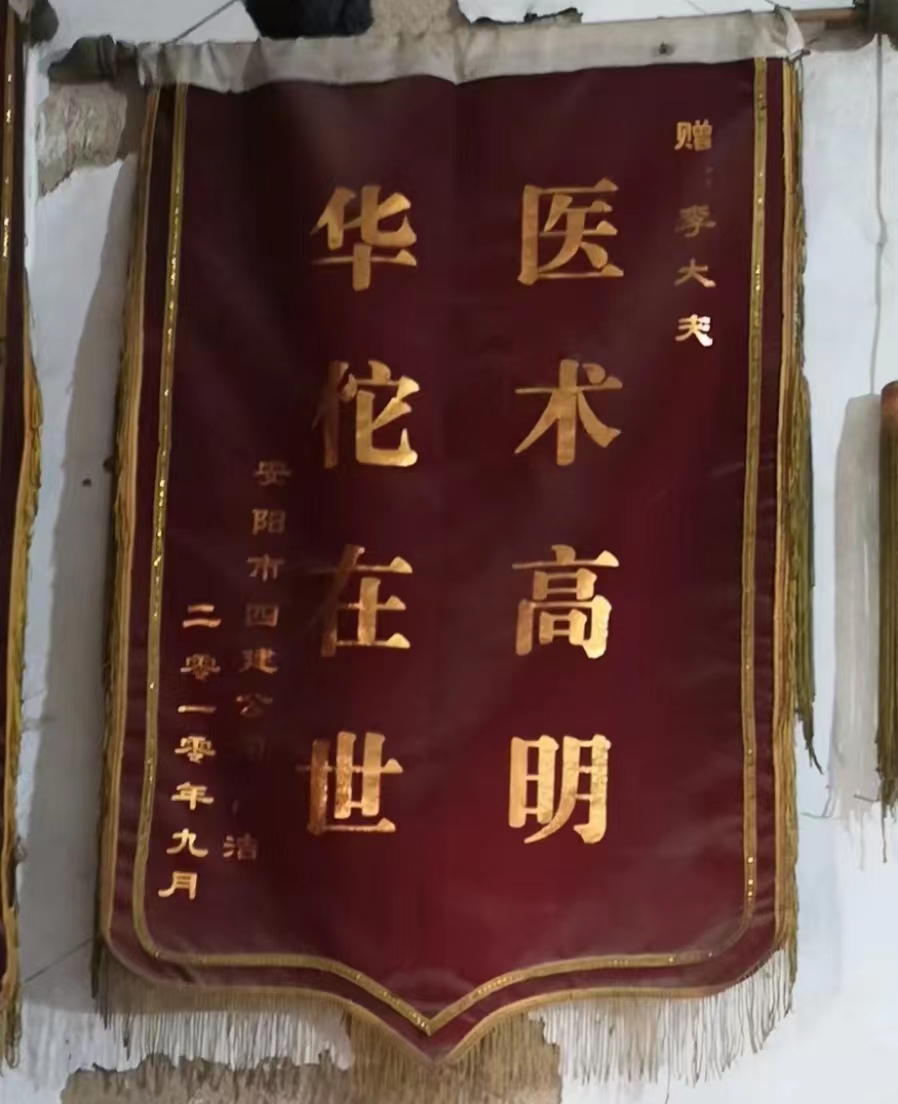 赠:李大夫
医术高明
华佗在世
安阳市四建公司 洁
二零一零年九月